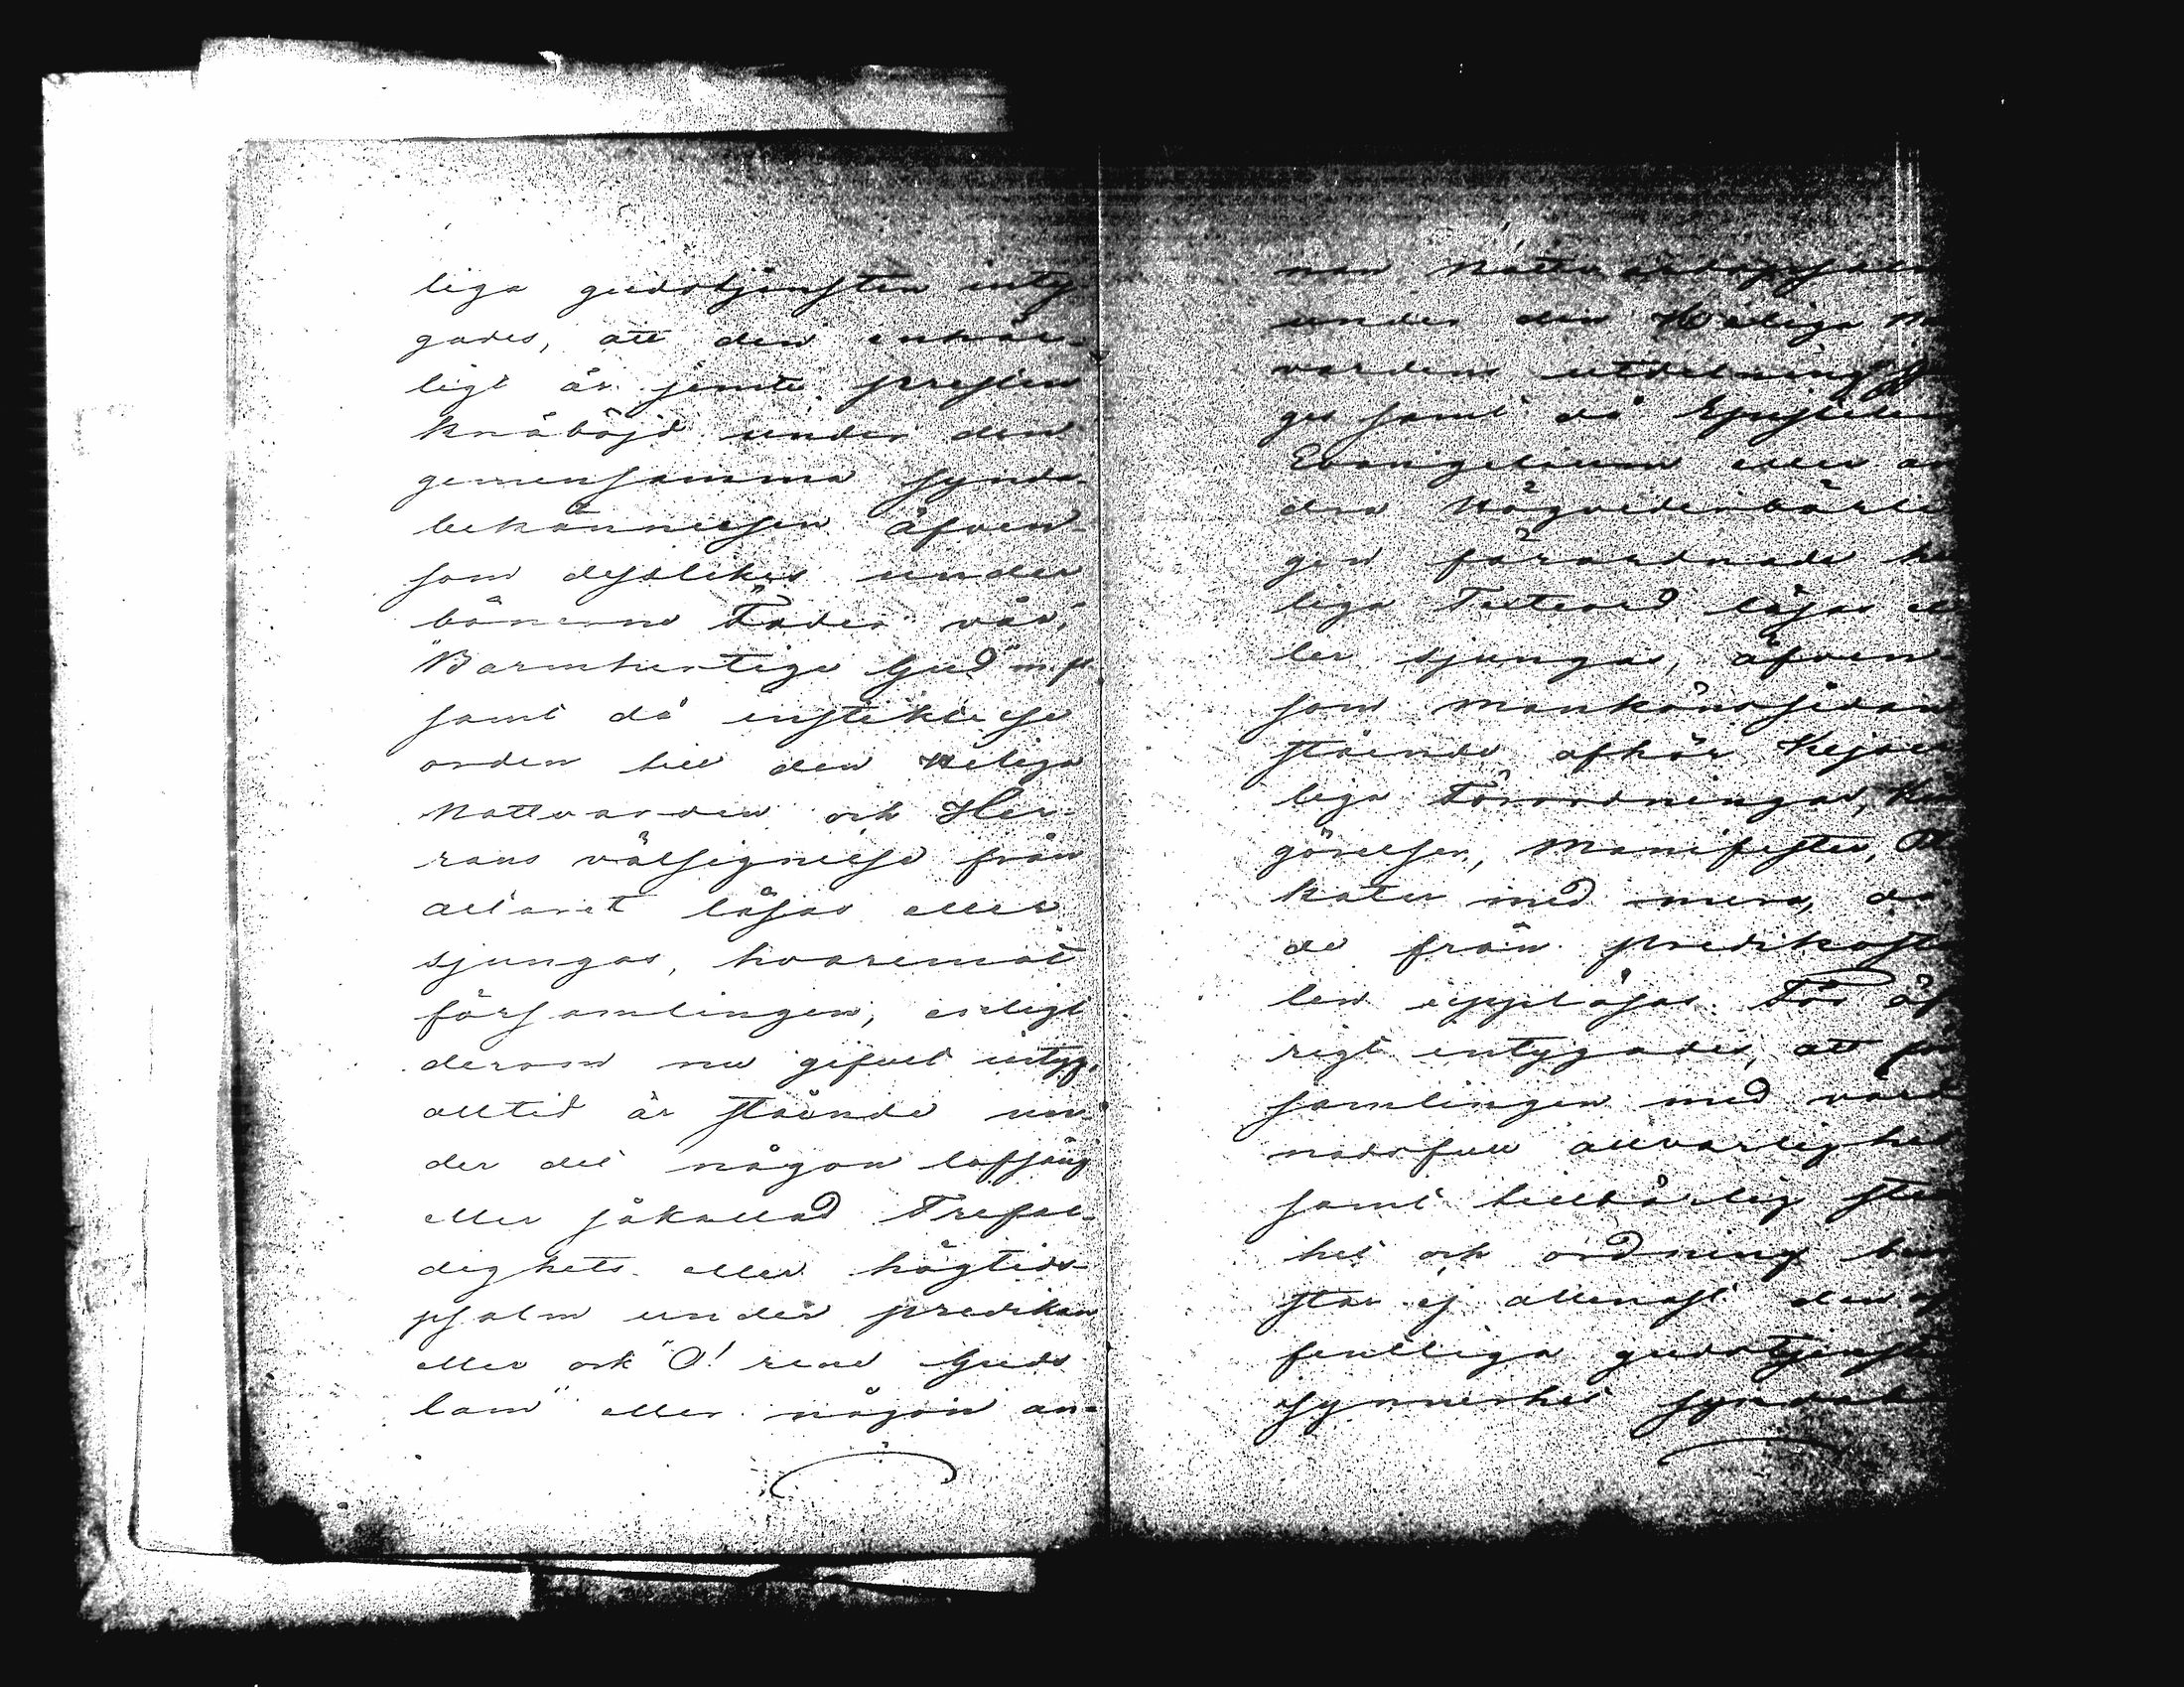 liga gudstjensten inty-
gades, att den enhäl-
ligt är jemte presten
knäböjd under den
gemensamma synda-
bekännelsen äfven-
som desslikes under
bönerne "Fader vår,"
"Barmhertige Gud" m. fl.
samt då instiktelse
orden till den Heliga
Nattvarden och Her-
rans välsignelse från
altaret läsas eller
sjungas, hvaremot
församlingen, enligt
derom nu gifvet intyg,
alltid är stående un-
der det någon lofsång
eller såkallad Trefal-
dighets- eller högtids-
psalm under predikan
eller ock "O! rene Guds
lam" eller någon an-
nan Nattvardspsalm
under den Heliga
vardens utdelning
ges samt då Epistelen
Evangelium eller an
dra Högvederbörli
gen förordnade he
liga Texteord läsas el
ler sjungas, äfven
som mankönssidan
stående afhör Kejser
liga Förordningar, Kun
görelser, Manifester, Pla
kater med mera, då
de från predikosto
len uppläsas. För öf
rigt intygades, att för
samlingen med vörd
nadsfull allvarlighet
samt tillbörlig still
het och ordning bevi
star ej allenast den of
fentliga gudstjensten
synnerhet syndabe